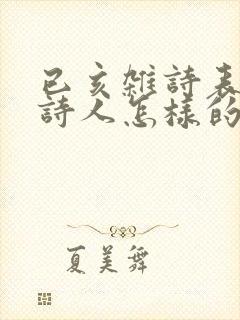 己亥雜詩表
詩人怎樣的
夏美舞